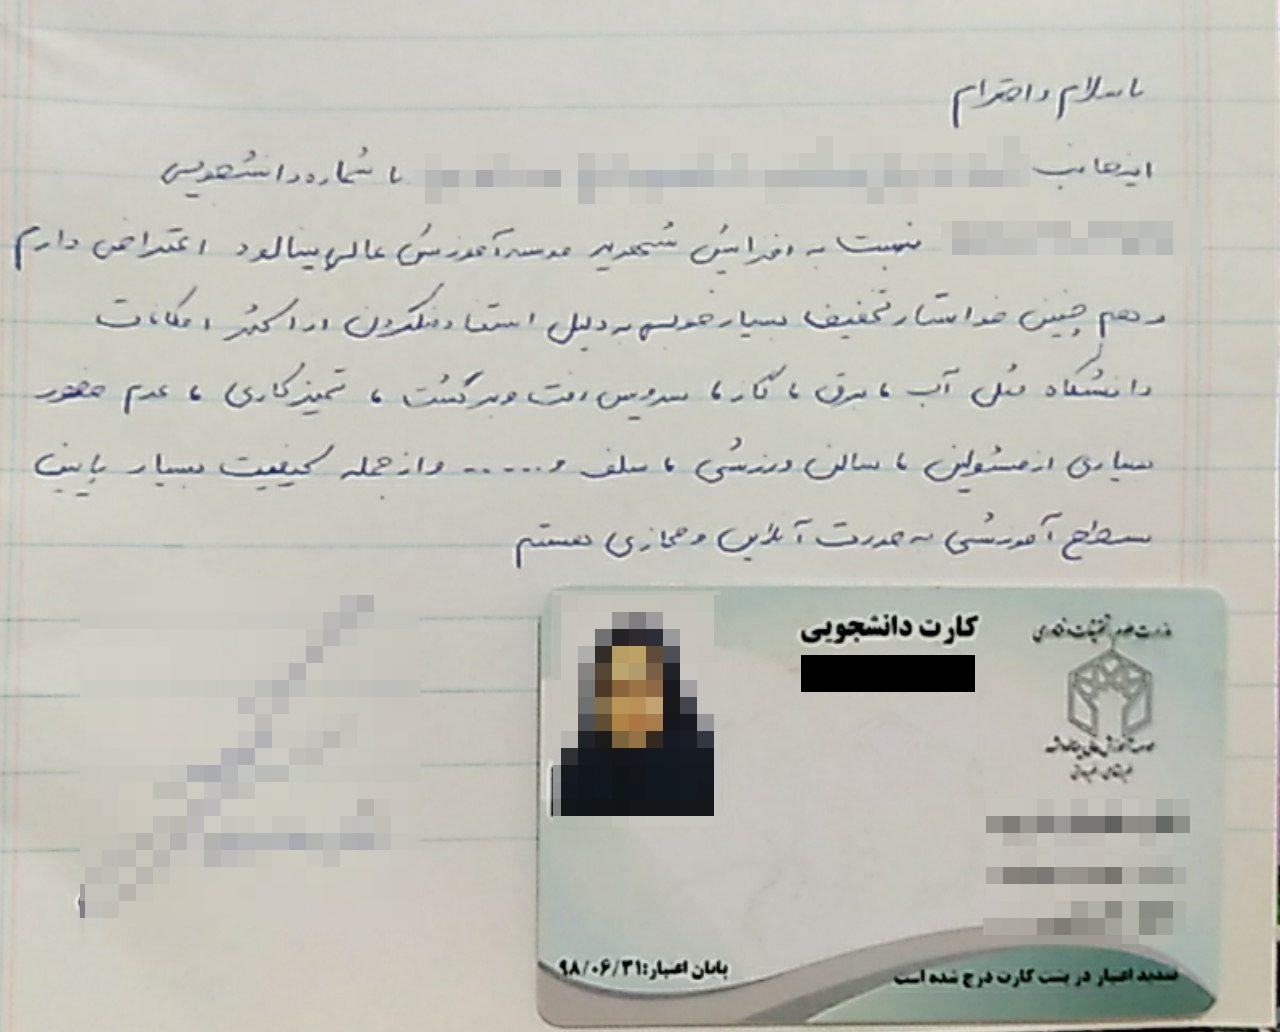 با سلام و احترام
اینجانب با شماره دانشجویی
نسبت به افزایش شهریه موسسه آموزش عالی بینالود اعتراض دارم
و هم چنین خواستار تخفیف بسیار خوب به دلیل استفاده نکردن از اکثر امکانات
دانشگاه مثل آب ، برق ، گاز ، سرویس رفت و برگشت ، تمیزکاری ، عدم حضور
بسیاری از مسئولین ، سالن ورزشی ، سلف و..... و از جمله کیفیت بسیار پایین
سطح آموزشی به صورت آنلاین و مجازی هستم
کارت دانشجویی
وزارت علوم، تحقیقات و فناوری
پایان اعتبار: ۹۸/۰۶/۳۱
تمدید اعتبار در پشت کارت درج شده است